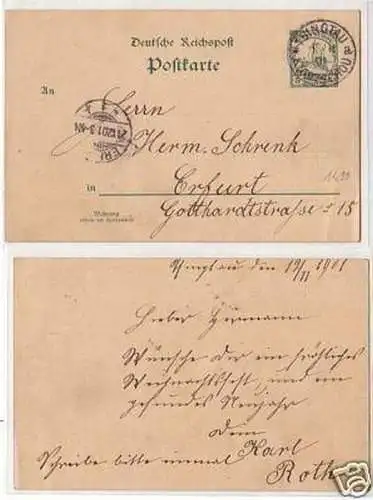 Deutsche Reichspost
Postkarte
TSINGTAU
KIAUTSCHOU
An
Herrn
Herm. Schrenk
in Erfurt
Gotthardtstraße 15
Wohnung
Tsingtau den 19/11 1901
Lieber Hermann
Wünsche Dir ein fröhliches
Weihnachtsfest, und ein
gesundes Neujahr
Dein
Karl
Schreibe bitte einmal Roth